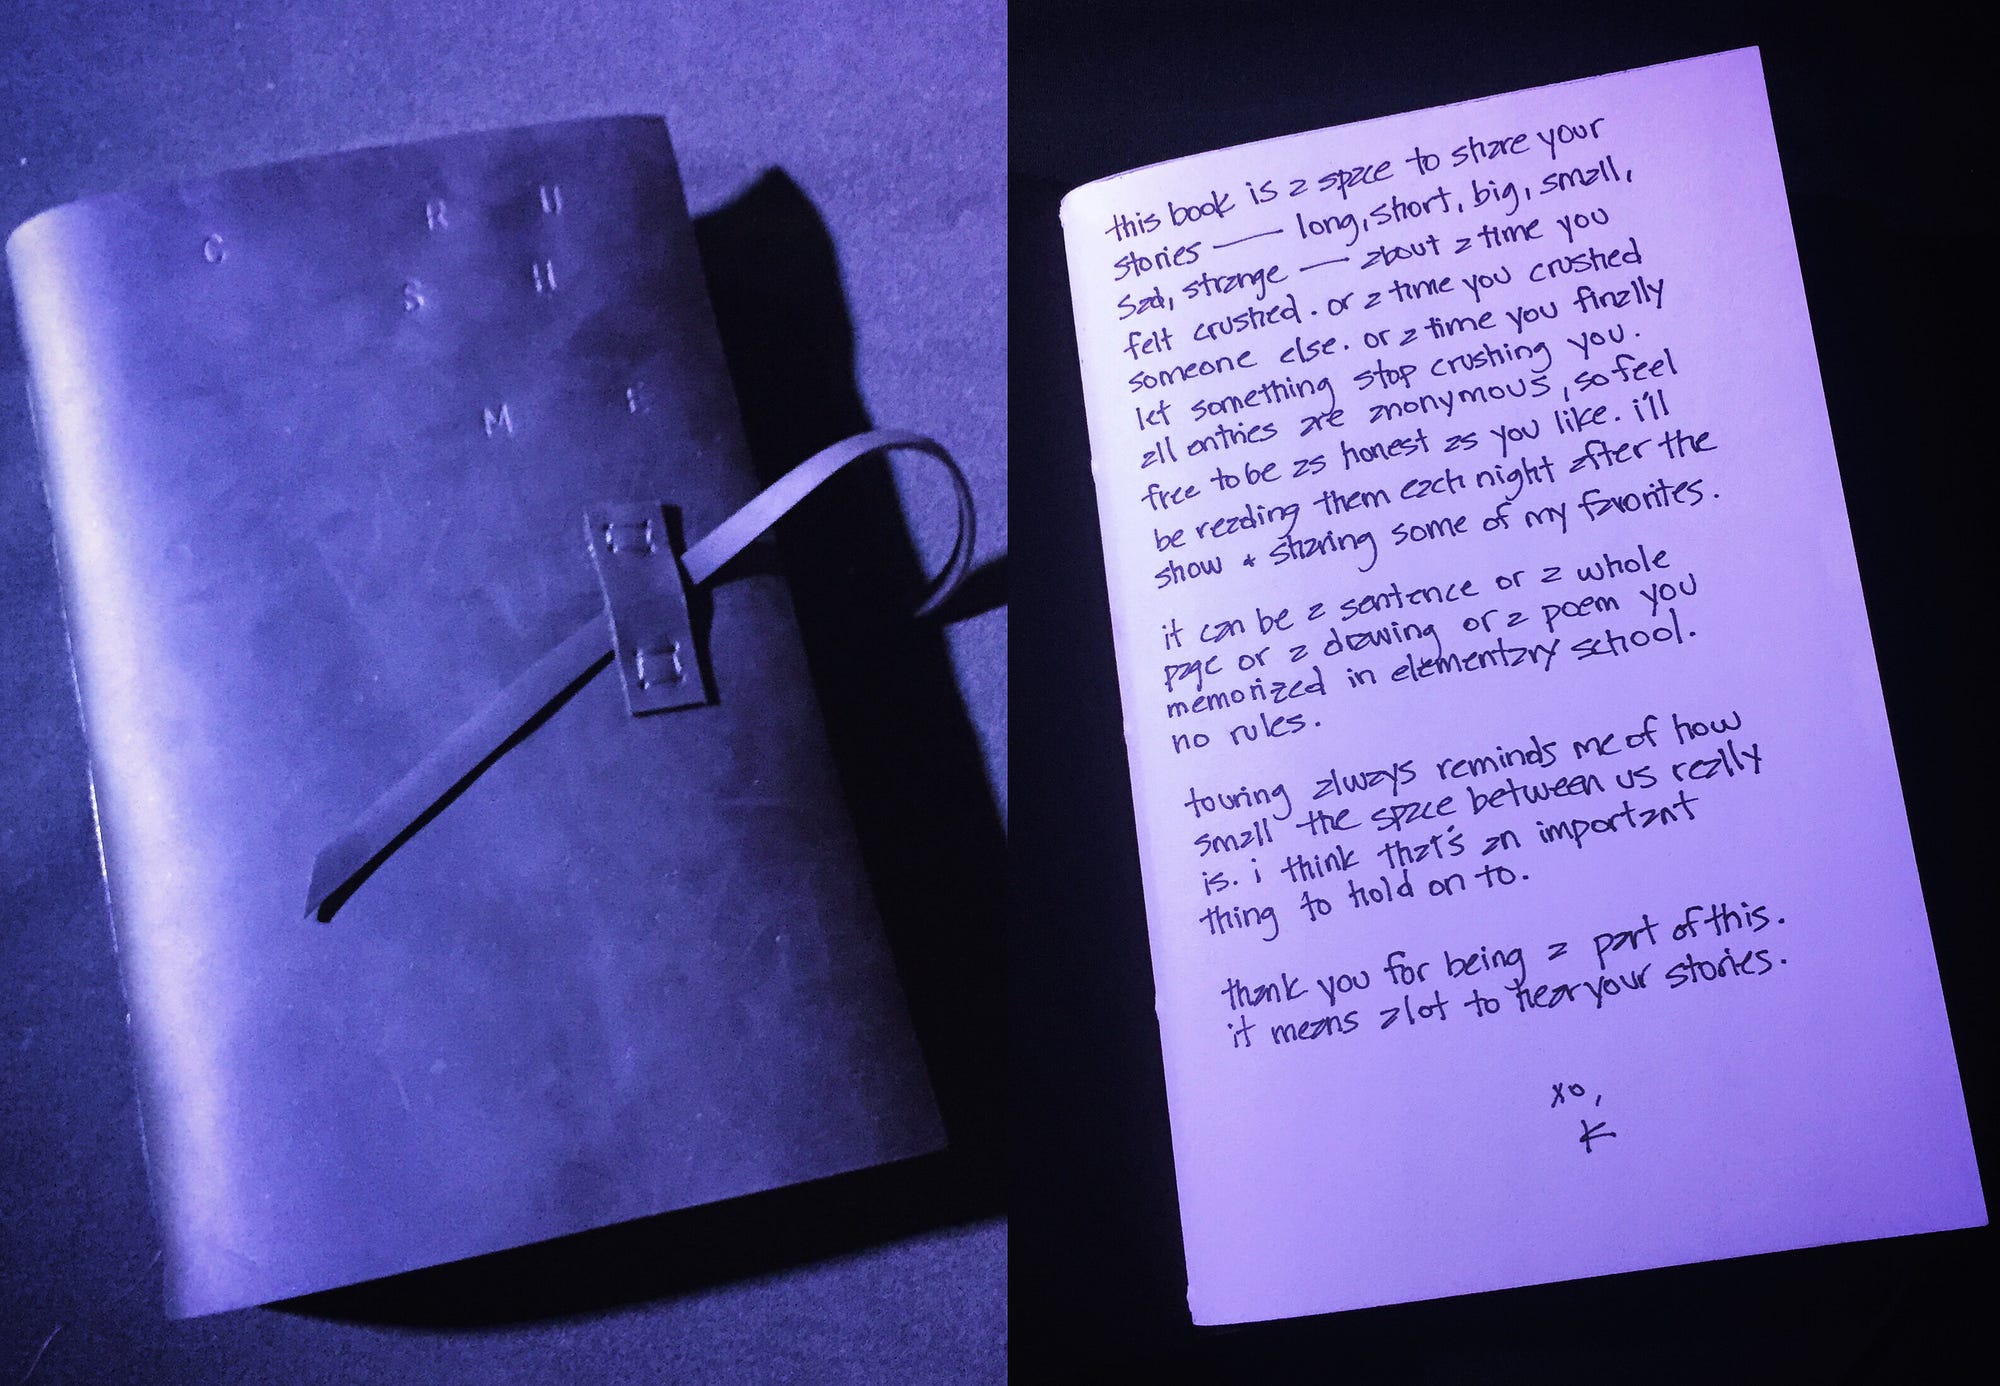 C R U
S H
M E
this book is a space to share your
stories — long, short, big, small,
sad, strange — about a time you
felt crushed. or a time you crushed
someone else. or a time you finally
let something stop crushing you.
all entries are anonymous, so feel
free to be as honest as you like. i'll
be reading them each night after the
show + sharing some of my favorites.
it can be a sentence or a whole
page or a drawing or a poem you
memorized in elementary school.
no rules.
touring always reminds me of how
small the space between us really
is. i think that's an important
thing to hold on to.
thank you for being a part of this.
it means alot to hear your stories.
xo,
K